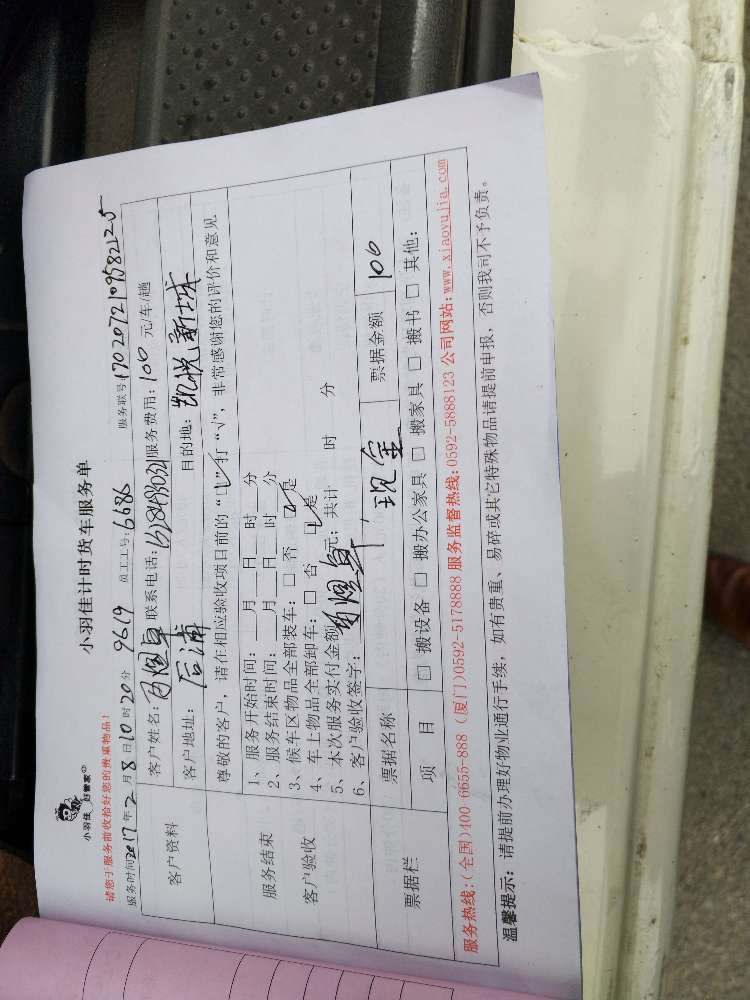 小羽佳 好管家
小羽佳计时货车服务单
请您于服务前收拾好您的贵重物品！
服务时间2017年2月8日10时20分 9619 员工工号:6686 服务联号:
客户资料
客户姓名: 联系电话: 服务费用:100元/车/趟
客户地址:后浦 目的地:凯悦新城
服务结束
客户验收
尊敬的客户，请在相应验收项目前的“□”打“√”，非常感谢您的评价和意见
1、服务开始时间: 月 日 时 分
2、服务结束时间: 月 日 时 分
3、候车区物品全部装车:□否 □是
4、车上物品全部卸车:□否 □是
5、本次服务实付金额 元; 共计 时 分
6、客户验收签字:
票据栏
票据名称 现金 票据金额 100
项 目 □搬设备 □搬办公家具 □搬家具 □搬书 □其他:
服务热线:(全国)400-6655-888 (厦门)0592-5178888 服务监督热线:0592-5888123 公司网站:www.xiaoyujia.com
温馨提示: 请提前办理好物业通行手续; 如有贵重、易碎或其它特殊物品请提前申报, 否则我司不予负责。